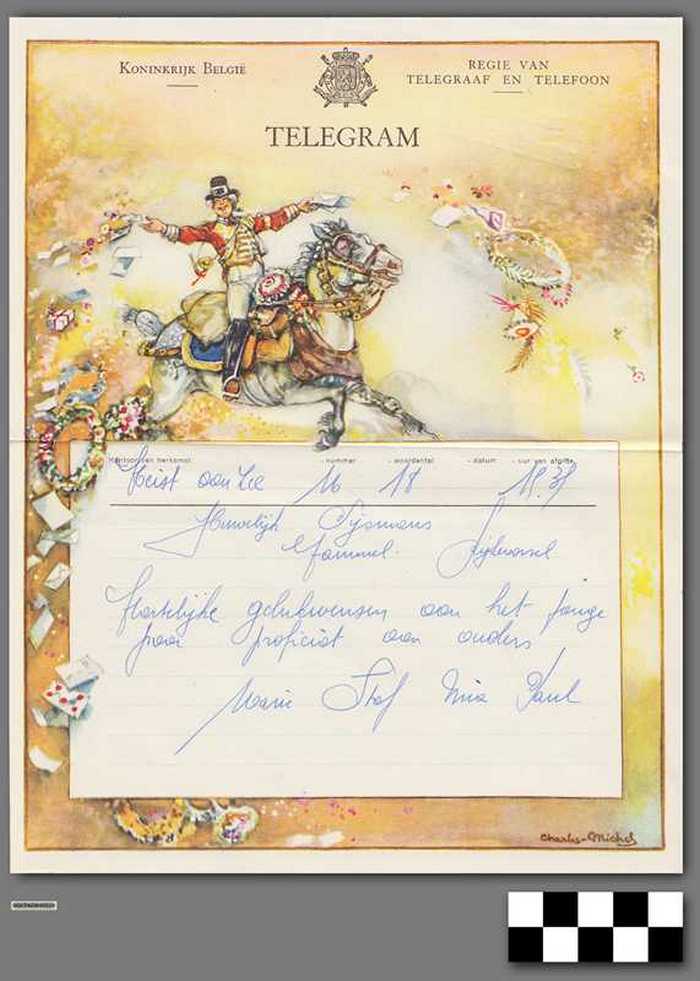 KONINKRIJK BELGIË
REGIE VAN
TELEGRAAF EN TELEFOON
TELEGRAM
Kantoor van herkomst - nummer - woordental - datum - uur van afgifte
Heist aan Zee 16 18 19.39
Huwelijk Sijsmans
Rijkevorsel
Hartelijke gelukwensen aan het jonge
paar proficiat aan ouders
Marie Staf Mia Paul
Charles-Michel